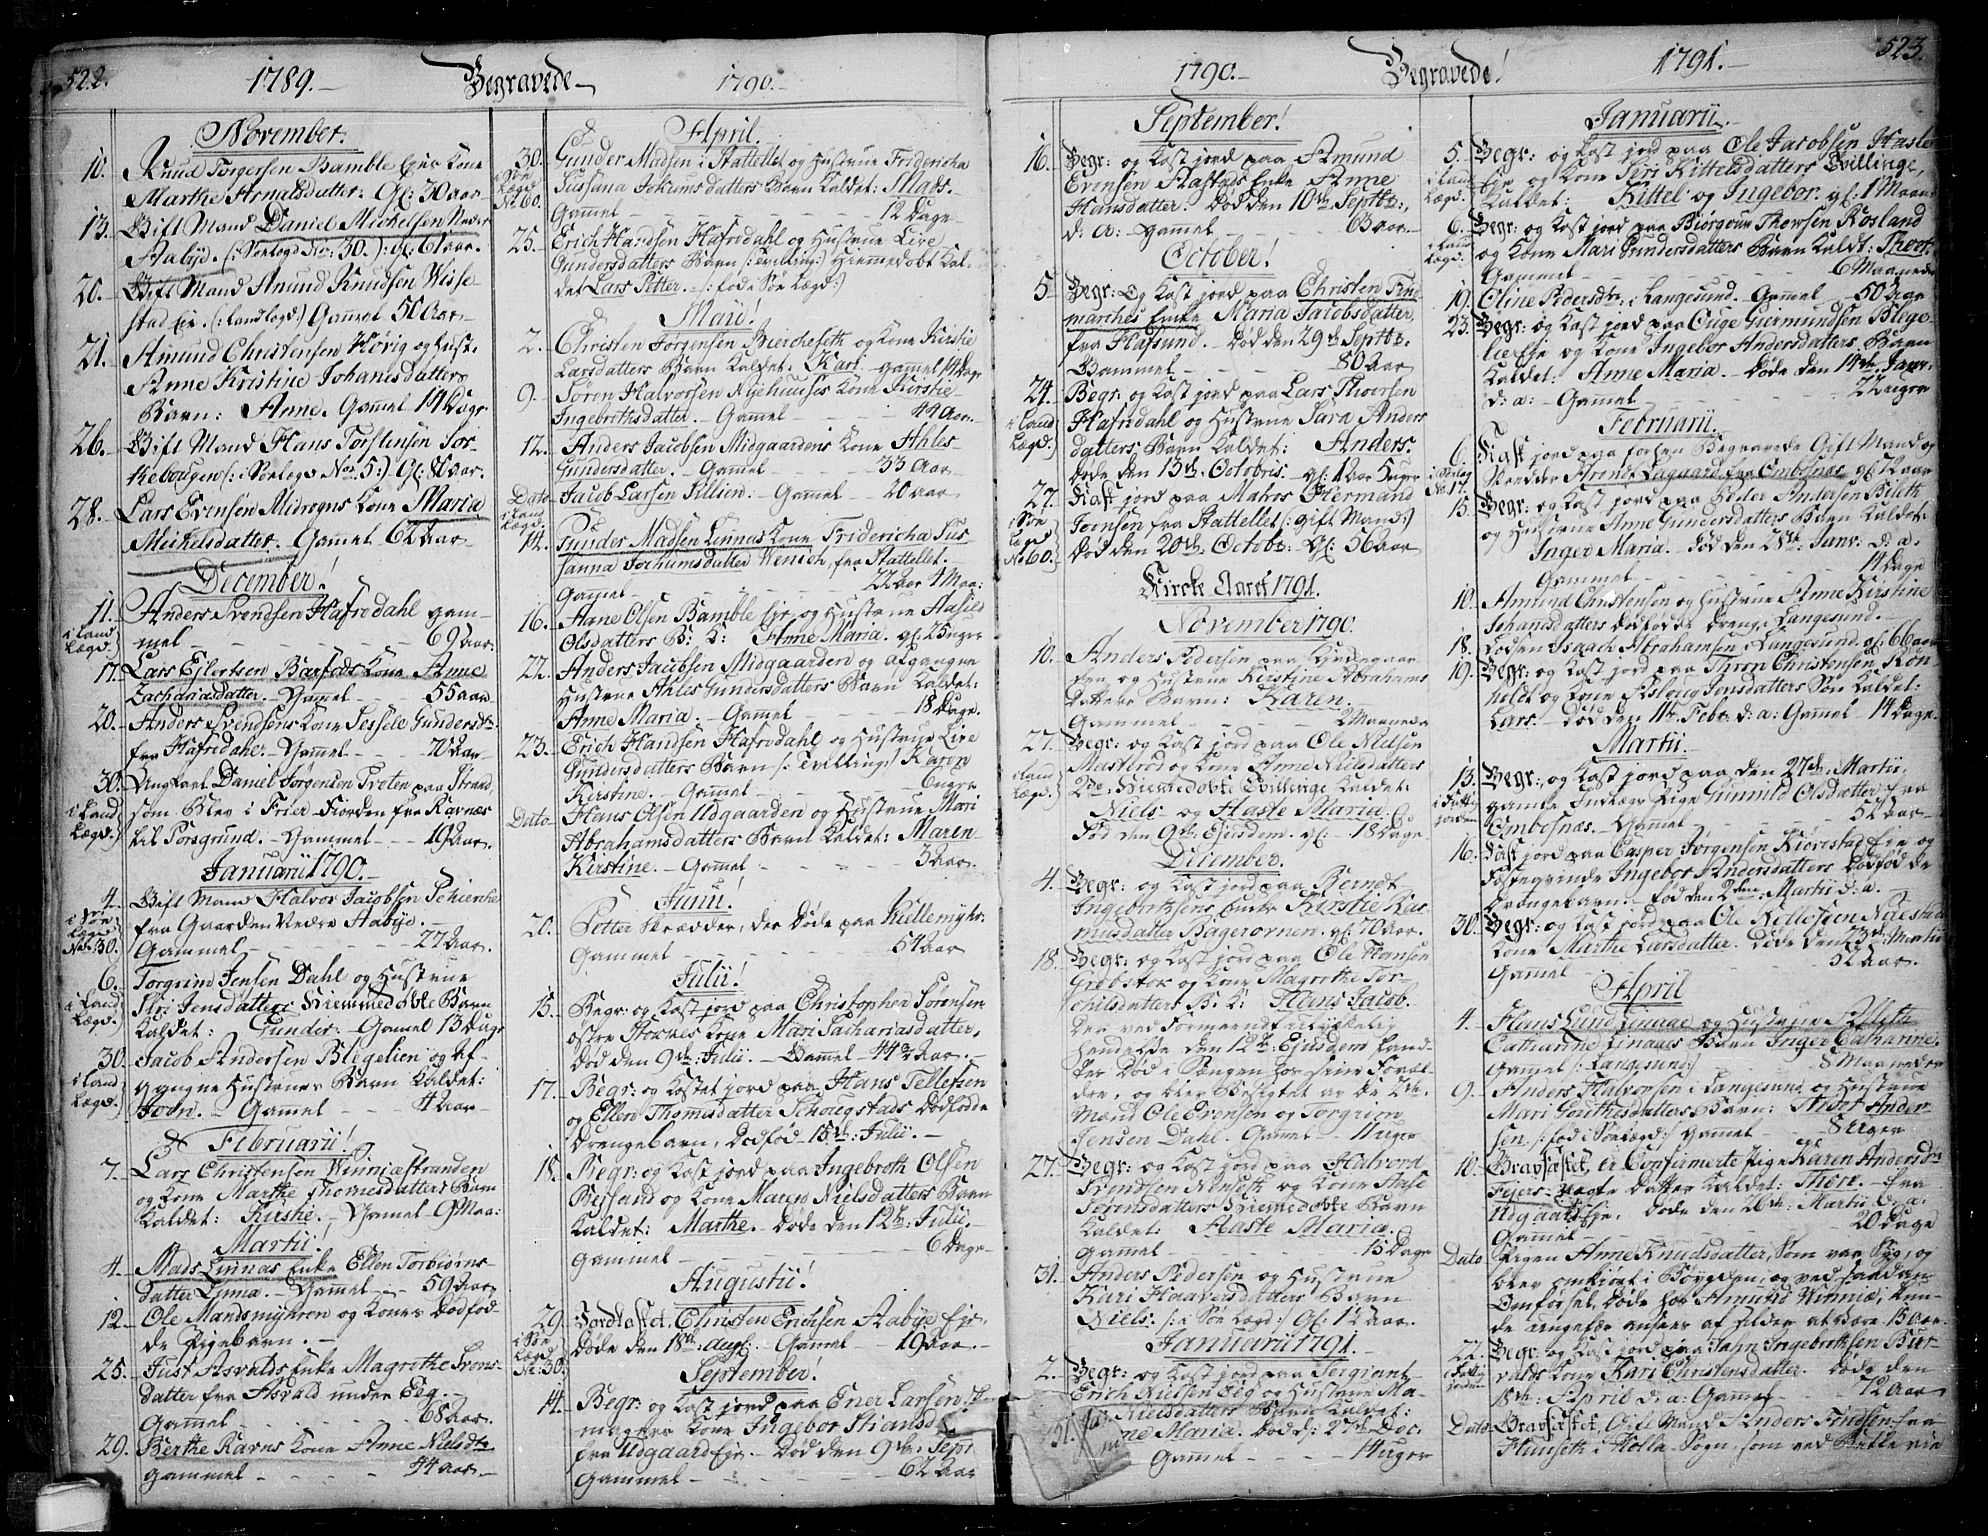 522. 1789. Begravede 1790.
November.
10. Knud Torgersen Bamble Ejes Kone
Marthe Arnalsdatter. Gl: 30 aar
13. Gift Mand Daniel Michelsen Nedre
Aabÿe. (: Søelægd No: 30.) gl: 61 aar.
20. Gift Mand Amund Knudsen Wisse-
stad Eje. (: Landlægd:) Gammel 50 Aar
21. Amund Christensen Hørig og Hust:
Anne Kristine Johanisdatters
Barn: Anne. Gammel 14 Dage
26. Gift Mand Hans Torstensen Tor-
kebougen (: i Sørlægd No: 5:) Gl: 80 aar.
28. Lars Evensen Midregns Kone Maria
Meikelsdatter. Gammel 62 Aar
December!
11. Anders Svendsen Hafredahl gam-
i Land
Lægd.
mel - - - 69 aar.
17. Lars Ejlertsen Barfods Kone Anne
Zachariadatter. Gammel - 55 aar
20. Anders Svendsens Kone Sessele Gundersdtr
fra Hafredahl. - Gammel - 70 Aar
30. Ung Karl Daniel Jørgensen Tveten paa Strand,
i Land
Lægd.
som blev i Frier-Fiorden fra Ravnæs
til Porsgrund. - Gammel - - 19 Aar.
Januarii 1790. -
4. Gift Mand Halvor Jacobsen Schierche
i Søe
Lægd
No: 30.
fra Gaarden Nedre Aabye. -
Gammel - - - 27 Aar.
6. Torgrim Jensen Dahl og Hustrue
i Land
Lægd.
Siri Jensdatters Hiemmedøbte Barn
Kaldet: Gunder. - Gamel 13 Dage
30. Jacob Andersen Blegelien og af-
i Land
Lægd.
gangne Hustrues Barn Kaldet:
Joen. - Gamel - - 4 Aar -
Februarii!
7. Lars Christensen Winniestranden
og Kone Marthe Thomesdatters Barn
Kaldet: Kirstie. - Gamel 9 Maa:
Martii!
4. Mads Linnas Enke Ellen Torbiørns-
datter Lynna. - Gammel - 59 Aar
12. Ole Mandsmyhren og Kones Dødfød-
de Pigebarn. -
25. Just Asvalds Enke Magrethe Irons-
datter fra Asvald under Eeg. -
Gammel - - - 68 Aar.
29. Berthe Ravns Kone Anne Nielsdtr
Gammel - - - 44 Aar. -
April.
30. Gunder Madsen i Stattellet og Hustrue Fridericha
i Søe
Lægd
No 60.
Sussana Jokumsdatters Barn Kaldet: Mads.
Gammel - - - 12 Dage -
25. Erich Handsen Hafredahl og Hustrue Live
Gundersdatters Barn (: Tvilling:) Hiemmedøbt Kal-
det Lars Petter. - (: føde Søe Lægd:)
Maii!
2. Christen Jørgensen Bercheseth og Kone Kirstie
Larsdatters Barn Kaldet: Kari - gammel 14 Dage
9. Søren Halvorsen Nyehuuses Kone Kirstie
Ingebrethsdatter. - Gammel - - 44 Aar.
12. Anders Jacobsen Midgaardens Kone Ahles
Gundersdatter. - Gammel - - 33 Aar -
Dato Jacob Larsen Lillien: - Gammel - 20 Aar
i Land
Lægd.
14. Gunder Madsen Linnas Kone Fridericha Sus-
sanna Jochumsdatter Wenich, fra Stattellet.
Gamel - - - 22 Aar 1 Maa:
16. Aane Olsen Bamble Eje og Hustrue Aasild
Olsdatters B: K: Anne Maria. gl: 25 uger
22. Anders Jacobsen Midgaarden og afgangne
Hustrue Ahles Gundersdatters Barn Kaldet:
Anne Maria. - Gamel - - 18 Dage.
23. Erich Handsen Hafredahl og Hustrue Live
Gundersdatters Barn (: Tvilling:) Karen
Kirstine. - Gamel - - 6 uger
Dato. Hans Olsen Udgaarden og Hustrue Mari
Abrahamsdatters Barn Kaldet: Maren
Kirstine. - Gamel - - 3 Aar.
Junii!
20. Petter Skrædder, der døde paa Kiellemyhr.
Gammel - - - 54 Aar
Julii!
15. Begr: og Kast jord paa Christopher Sørensen
østre Stokkes Kone Mari Sachariasdatter,
død den 9de Julii - Gammel - 44 2/4 Aar. -
17. Begr: og Kastet jord paa Hans Tellefsen
og Ellen Thomesdatter Schougstads Dødfødde
Drengebarn, Dødfød 15de Julii. -
18. Begr: og Kast jord paa Ingebreth Olsen
Besland og Kone Maren Nielsdatters Barn
Kaldet: Marthe. - døde den 12te Julii. -
Gammel - - - 6 Dage -
Augustii!
29. Jordfæstet, Christen Erichsen Aabye Eje
i Søe
Lægd
No: 30.
døde den 18de Aug: - Gammel - 19 Aar. -
September!
14. Begr: og Kast jord paa Ener Larsen
magers Kone Ingebor Stiansd
fra Udgaard Eje - Død den 9de Sept
Gammel - - - 62 Aar
523. 1790. - Begravede! 1791. -
September!
16. Begr: og Kast jord paa Amund
Evensen Stafstads Enke Anne
Hansdatter. Død den 10de Septbr:
d: a: - Gamel - - 63 aar. -
October!
5. Begr: og Kast jord paa Christen Find-
marches Enke Maria Jacobsdatter
fra Hafsund. Død den 29de Septbr.
Gammel - - - 80 Aar
24. Begr: og Kast jord paa Lars Thoersen
i Land
Lægd.
Hafredahl og Hustrue Sara Anders
datters Barn Kaldet: Anders.
døde den 13de Octobris. - gl: 1 Aar 5 uger
27. Kast jord paa Matros Hermand
i Søe
Lægd
No: 60.
Jonsen fra Stattellet (: gift Mand:)
Død den 20de Octobr: Gl: 56 aar
Kirke Aaret 1791.
November 1790.
10. Anders Pedersen paa Kirkegaar
den og Hustrue Kirstine Abrahams
datters Barn: Karen.
Gammel - - - 2 Maaneder
27. Begr: og Kast jord paa Ole Nielsen
i Land
Lægd.
Masterød og Kone Anne Nielsdatters
2de Hiemedøbte Tvillinge Kaldet:
Niels og Haste Maria.
Fød den 9de Ejusdem. gl: - 18 Dage
December.
4. Begr: og Kast jord paa Berndt
Ingebrethsens Enke Kirstie Ras-
musdatter Bagerovnen. gl: 70 Aar.
18. Begr: og Kast jord paa Ole Hansen
Grobstok og Kone Magrethe Tor-
chilsdatters B: K: Hans Jacob.
der ved Formeendt ulykkelig
hendelse den 12te Ejusdem fand-
tes Død i Sængen hos sine Foræl-
dre, og blev Besigtet af de 2de
Mænd Ole Evensen og Torgrim
Jensen Dahl. Gammel - 11 uger
27. Begr: og Kast jord paa Halvord
Svendsen Nenseth og Kone Aase
Sørensdatters Hiemedøbte Barn
Kaldet: Aaste Maria.
Gammel - - - 15 Dage
31. Anders Pedersen og Hustrue
Kari Haaversdatters Barn
Niels. (: i Søe Lægd:) Gl: 12 aar.
Januarii 1791. -
2. Begr: og Kast jord paa Sergiant
Erich Nielsen Eeg og Hustrue Ma-
Nielsdatters Barn Kaldet:
ne Maria. Død d: 27de Dec.
Gammel - - - 14 uger
Januarii.
5. Begr: og Kast jord paa Ole Jacobsen Hasle
i Land
Lægd.
Eje og Kone Siri Kittelsdatters Tvillinge,
Kaldet: Kittel og Ingebor. gl: 1 Maan
6. Begr: og Kast jord paa Biørgom Thorsen Rosland
i Land
Lægd.
og Kone Mari Gundersdatters Barn Kaldt: Thore
Gammel - - - 6 Maaneder
10. Oline Pedersdtr i Langesund. Gammel - 50 Dage
23. Begr: og Kast jord paa Ouge Giermundsen Blege-
lie Eje og Kone Ingebor Andersdatters Barn
Kaldet: Anne Maria. - døde den 14de Janr:
d: a: - Gamel - - - 22 uger
Februarii.
6. Kast jord paa forhen Begravede Gift Mand og
i Sørlægd
No: 17.
Skredder Arendt Lagaard fra Embesnæs. gl: 52 aar
13. Begr: og Kast jord paa Peder Andersen Bileth
og Hustrue Anne Gundersdatters Barn Kaldet:
Inger Maria. Fød den 28de Janr. d: a:
Gammel - - - 14 Dage
10. Amund Christensen og Hustrue Anne Kirstine
Johansdatters dødfødde Drenge, Langesund. -
18. Lodsen Isaach Abrahamsen Langesund. gl: 66 aar
19. Begr: og Kast jord paa Thron Christensen Røn-
holdt og Kone Asloug Jensdatters Søn Kaldet:
Lars. - Død den 11te Febr. d: a: Gammel - 14 Dage.
Martii.
13. Begr: og Kast jord paa den 27de Martii,
i Fattig
jorden
gamle Indlægs Pige Gunnild Olsdatter fra
Embesnæs. - Gammel - - 52 Aar -
16. Kast jord paa Casper Jørgensen Kiørestad Eje og
Fæsteqvinde Ingebor Andersdatters Dødfødde
Drengebarn. - fød den 2den Martii d: a. -
30. Begr: og Kast jord paa Ole Nellessen Nerestad
Kone Marthe Larsdatter. døde den 23de Martii
Gamel - - - 52 Aar.
April
4. Hans Lund Linaae og Hustrue Alleth
Catharine Linaaes Barn Inger Catharine.
Gamel (: Langesund:) - - 8 Maaneder
9. Anders Halvorsen i Langesund og Hustrue
Mari Gouthesdatters Barn: Niels Ander-
sen. (: fød i Søelægd:) Gammel - - 8 uger
10. Gravfæstet, er Confirmerte Pige Karen Andersdtr
Fejers: Uægte Datter Kaldet: Thore. - fra
Udgaards Eje, døde den 26de Martii d: a:
Gammel - - - 20 Dage
Dato Pigen Anne Knudsdatter, Som var Syg, og
blev omkiørt i Bøygden, og ved saadan
Omførsel, døde hos Amund Winnie, kun-
de ungefær ansees af Alder at være 15 aar.
22. Begr: og Kast jord paa John Ingebrethsen Bur-
i Fattig
jorden
valds Kone Kari Christensdatter. døde den
18de April d: a: Gammel - - 72 Aar
Dato. Gravfæstet, Gift Mand Anders Findsen fra
Hunseth i Holla-Sogn, som ved Bølle vie